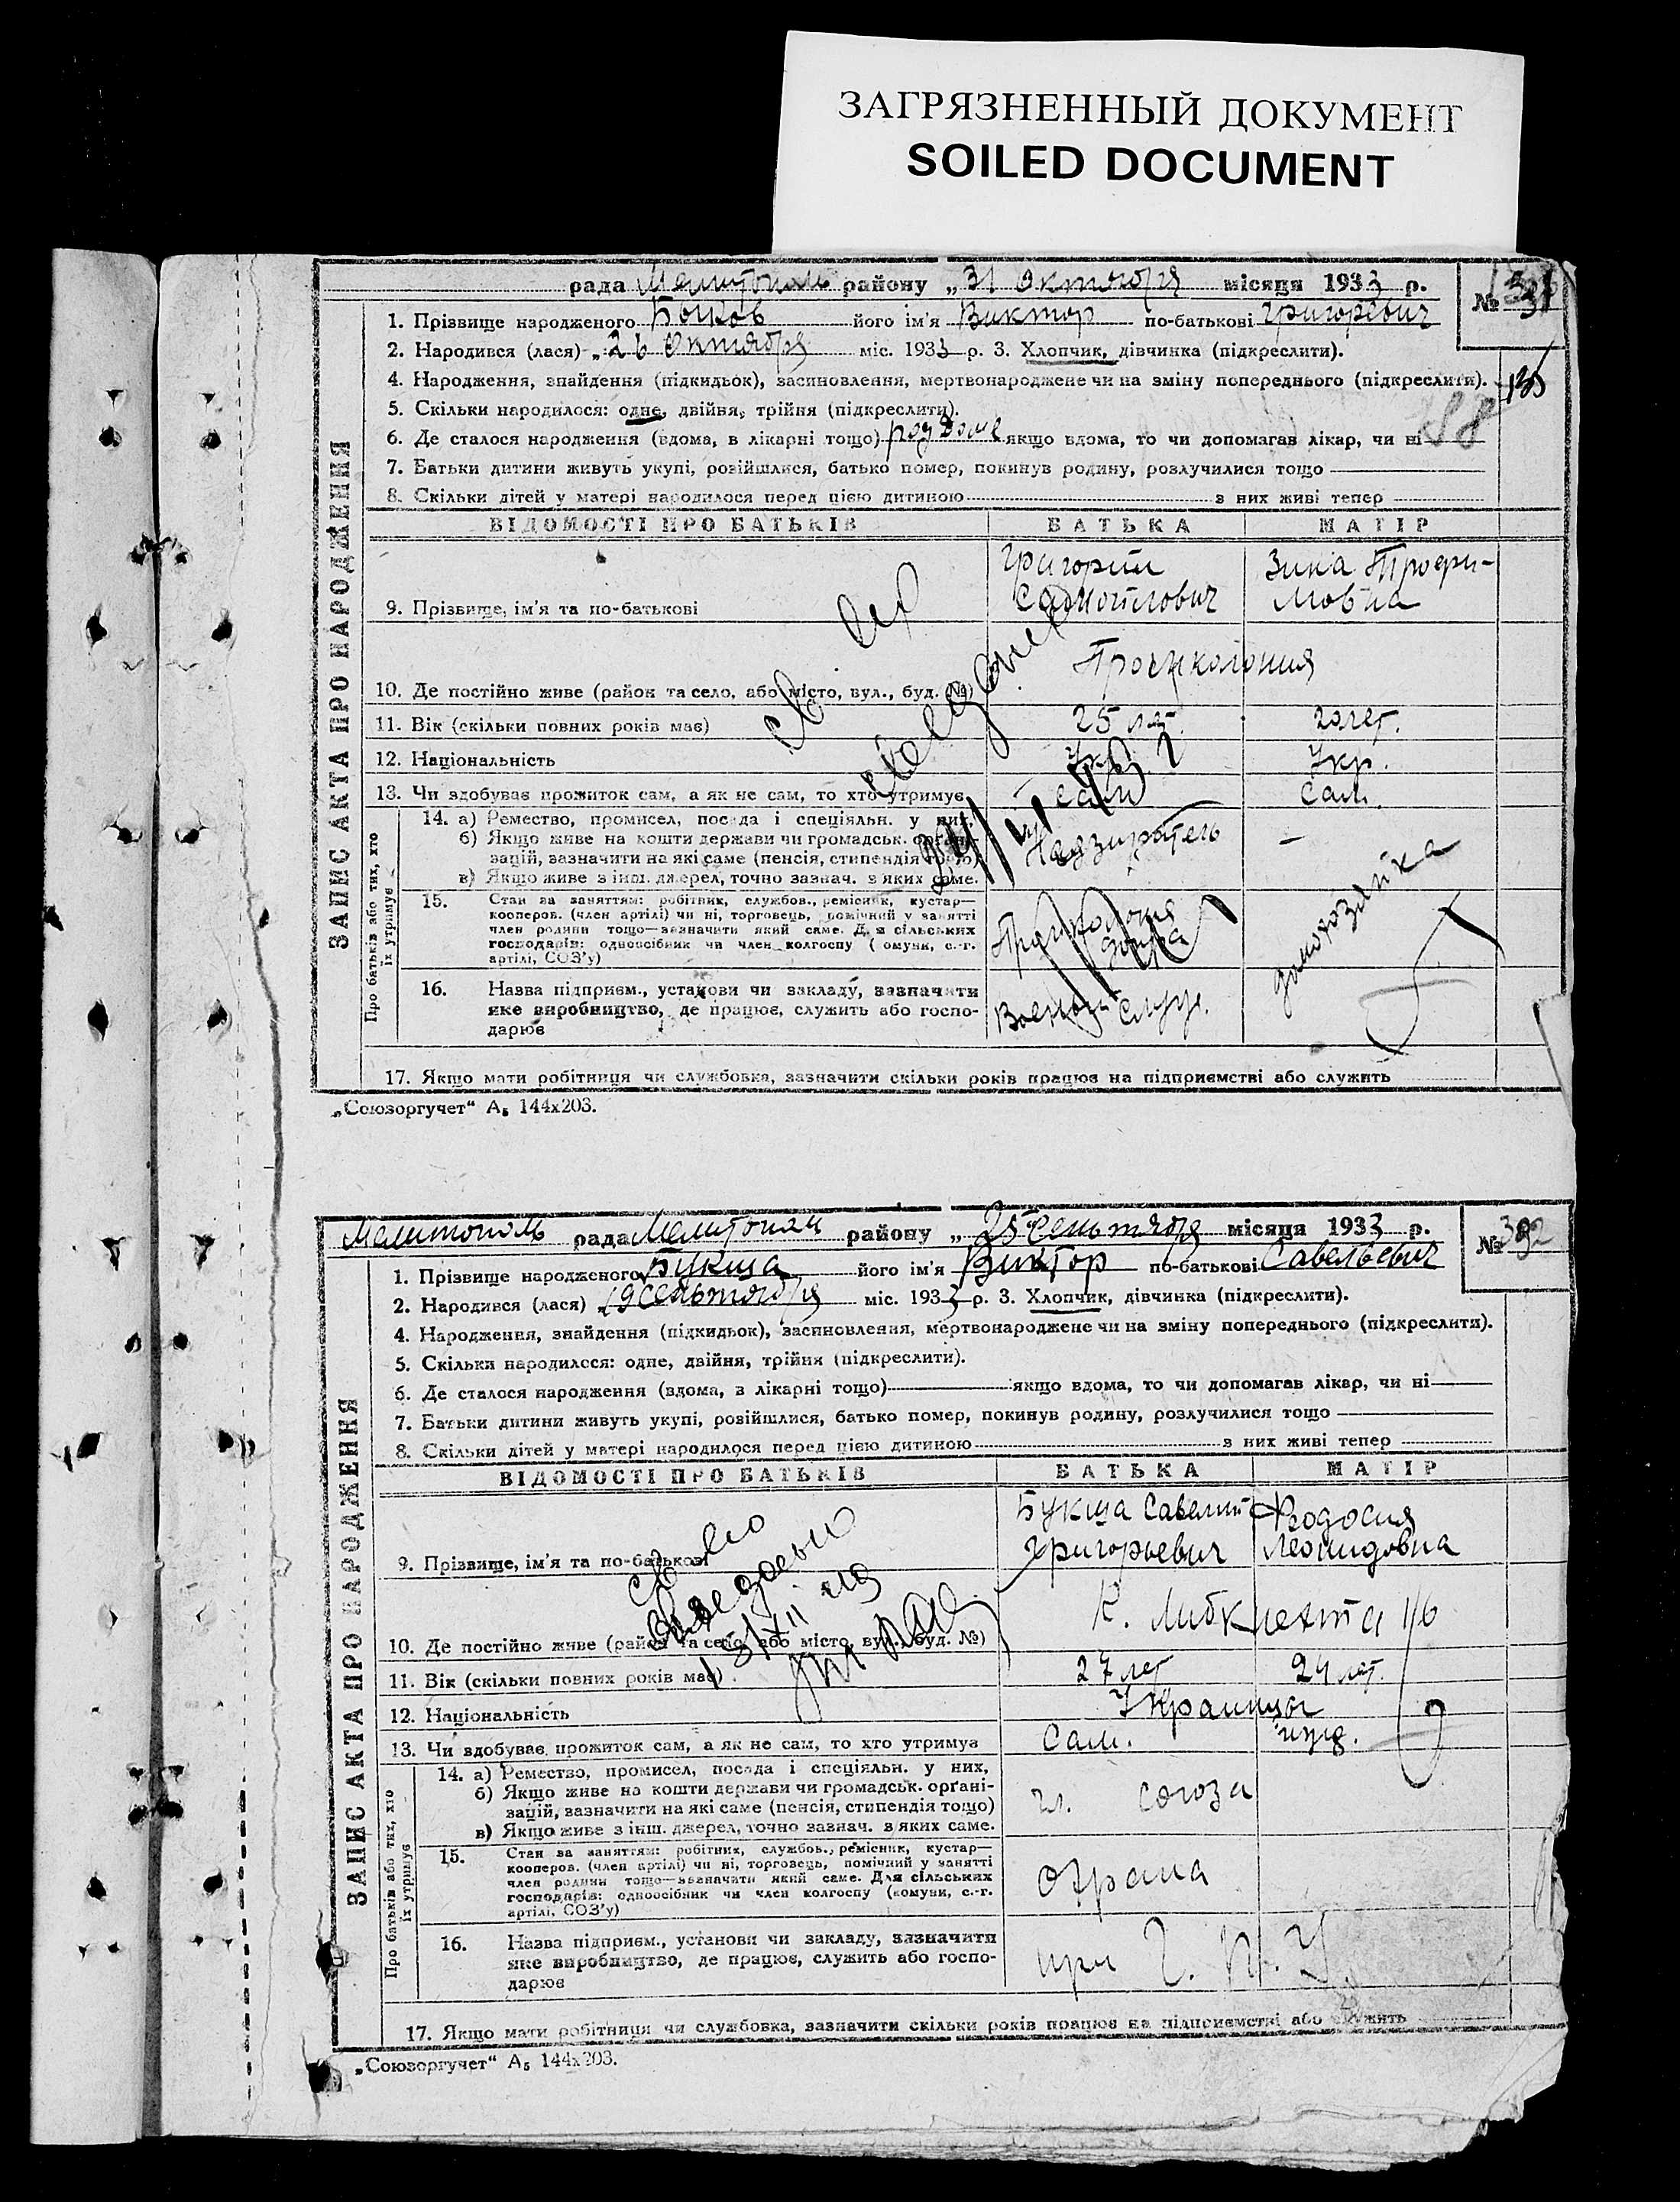 ЗАГРЯЗНЕННЫЙ ДОКУМЕНТ
SOILED DOCUMENT
рада Мелитополь району „31 Октября місяця 1933 р.
№ 31
1. Прізвище народженого Бочков його ім'я Виктор по-батькові Григорьевич
2. Народився (лася) „26 Октября міс. 1933 р. 3. Хлопчик, дівчинка (підкреслити).
4. Народження, знайдення (підкидьок), засиновлення, мертвонароджене чи на зміну попереднього (підкреслити).
135
5. Скільки народилося: одне, двійня, трійня (підкреслити).
88
6. Де сталося народження (вдома, в лікарні тощо) роддоме якщо вдома, то чи допомагав лікар, чи ні
7. Батьки дитини живуть укупі, розійшлися, батько помер, покинув родину, розлучилися тощо
8. Скільки дітей у матері народилося перед цією дитиною з них живі тепер
ЗАПИС АКТА ПРО НАРОДЖЕННЯ
ВІДОМОСТІ ПРО БАТЬКІВ БАТЬКА МАТІР
Григорий Зина Трофи-
9. Прізвище, ім'я та по-батькові Самойлович мовна
10. Де постійно живе (район та село, або місто, вул., буд. №)
11. Вік (скільки повних років має) 25 лет. 20 лет.
12. Національність Укр. Укр.
13. Чи здобуває прожиток сам, а як не сам, то хто утримує Сам Сам.
Про батьків або тих, хто їх утримує
14. а) Ремество, промисел, посада і спеціяльн. у них,
б) Якщо живе на кошти держави чи громадськ. органі-
зацій, зазначити на які саме (пенсія, стипендія тощо)
в) Якщо живе з інш. джерел, точно зазнач. з яких саме.
Надзиратель —
15. Стан за заняттям: робітник, службов., ремісник, кустар—
кооперов. (член артілі) чи ні, торговець, помічний у занятті
член родини тощо—зазначити який саме. Для сільських
господарів: одноосібник чи член колгоспу (комуни, с.-г.
артілі, СОЗ'у)
домохозяйка
16. Назва підприєм., установи чи закладу, зазначити
яке виробництво, де працює, служить або госпо-
дарює
17. Якщо мати робітниця чи службовка, зазначити скільки років працює на підприємстві або служить
„Союзоргучет“ А5 144х203.
Мелитополь рада Мелитополь району „25 Сентября місяця 1933 р.
№ 392
1. Прізвище народженого Букша його ім'я Виктор по-батькові Савельевич
2. Народився (лася) „19 Сентября міс. 1933 р. 3. Хлопчик, дівчинка (підкреслити).
4. Народження, знайдення (підкидьок), засиновлення, мертвонароджене чи на зміну попереднього (підкреслити).
5. Скільки народилося: одне, двійня, трійня (підкреслити).
6. Де сталося народження (вдома, в лікарні тощо) якщо вдома, то чи допомагав лікар, чи ні
7. Батьки дитини живуть укупі, розійшлися, батько помер, покинув родину, розлучилися тощо
8. Скільки дітей у матері народилося перед цією дитиною з них живі тепер
ЗАПИС АКТА ПРО НАРОДЖЕННЯ
ВІДОМОСТІ ПРО БАТЬКІВ БАТЬКА МАТІР
Букша Савелий Феодосия
9. Прізвище, ім'я та по-батькові Григорьевич Леонидовна
К. Либкнехта 116
10. Де постійно живе (район та село, або місто, вул., буд. №)
11. Вік (скільки повних років має) 27 лет 24 лет.
12. Національність Украинцы
13. Чи здобуває прожиток сам, а як не сам, то хто утримує Сам. ижд.
Про батьків або тих, хто їх утримує
14. а) Ремество, промисел, посада і спеціяльн. у них,
б) Якщо живе на кошти держави чи громадськ. органі-
зацій, зазначити на які саме (пенсія, стипендія тощо)
в) Якщо живе з інш. джерел, точно зазнач. з яких саме.
чл. союза
15. Стан за заняттям: робітник, службов., ремісник, кустар—
кооперов. (член артілі) чи ні, торговець, помічний у занятті
член родини тощо—зазначити який саме. Для сільських
господарів: одноосібник чи член колгоспу (комуни, с.-г.
артілі, СОЗ'у)
охрана
16. Назва підприєм., установи чи закладу, зазначити
яке виробництво, де працює, служить або госпо-
дарює
при Г. П. У.
17. Якщо мати робітниця чи службовка, зазначити скільки років працює на підприємстві або служить
„Союзоргучет“ А5 144х203.